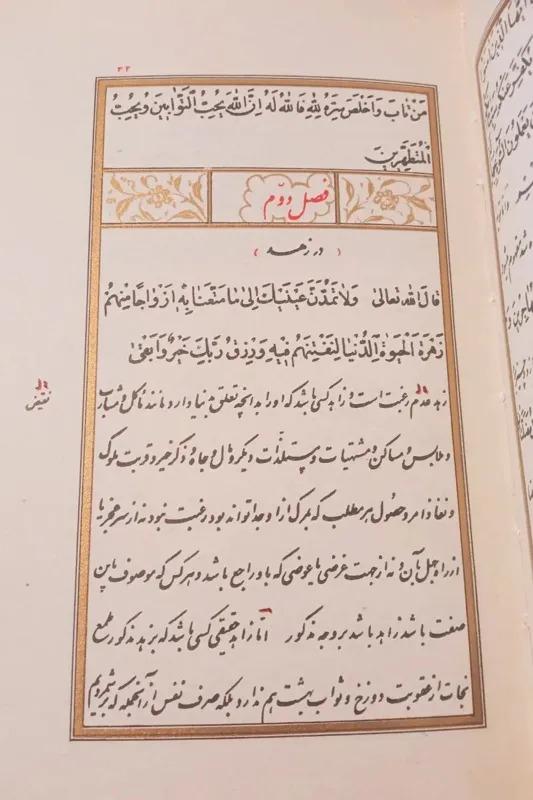 مَنْ تابَ وَاَخْلَصَ سِرَّهُ لِلّٰهِ فَاللّٰهُ لَهُ اِنَّ اللّٰهَ يُحِبُّ التَّوّابينَ وَيُحِبُّ
الْمُتَطَهِّرينَ
فصل دوّم
(در زهد)
قالَ اللّٰه تعالى وَلا تَمُدَّنَّ عَيْنَيْكَ اِلى ما مَتَّعْنا بِهِ اَزْواجًا مِنْهُمْ
زَهْرَةَ الْحَيوةِ الدُّنْيا لِنَفْتِنَهُمْ فيهِ وَرِزْقُ رَبِّكَ خَيْرٌ وَاَبْقى
زهد عدم رغبت است و زاهد کسی باشد که اورا بدانچه تعلق بدنیا دارد مانند مآکل و مشارب
نقیض
و ملابس و مساکن و مشتهیات و مستلذّات دیگر و مال و جاه و ذکر خیر و قربت ملوک
و نفاذ امر و حصول هر مطلب که بمرگ از او جدا تواند بود رغبت نبود نه از سر عجز یا
از راه جهل بآن و نه از جهت غرضی یا عوضی که باو راجع باشد و هر کس که موصوف باین
صفت باشد زاهد باشد بر وجه مذکور امّا زاهد حقیقی کسی باشد که بزهد مذکور طمع
نجات از عقوبت دوزخ و ثواب بهشت هم ندارد بلکه صرف نفس از آنجمله که برشمردیم